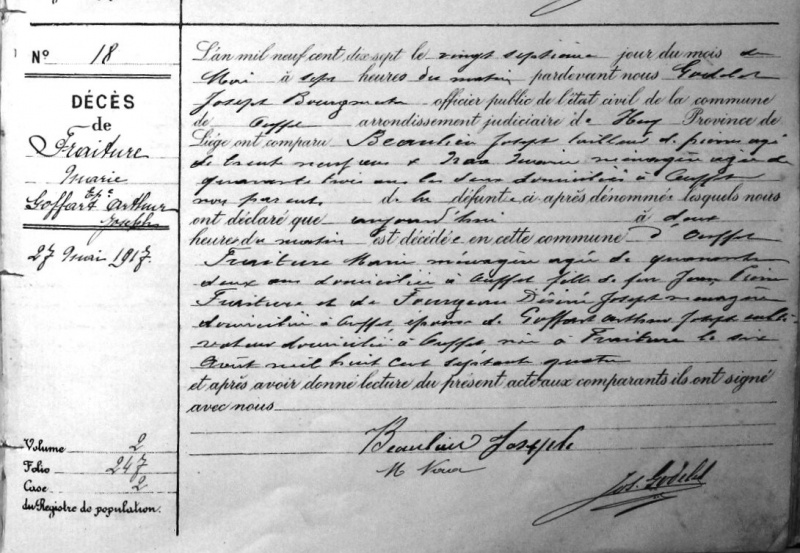 N° 18
DÉCÈS
de
Fraiture
Marie
Epse
Goffart Arthur
Joseph
27 Mai 1917.
Volume 2
Folio 247
Case 2
du Registre de population.
L'an mil neuf cent dix sept le vingt septième jour du mois de
Mai à sept heures du matin pardevant nous Godelet
Joseph Bourgmestre officier public de l'état civil de la commune
de Ouffet arrondissement judiciaire de Huy Province de
Liége ont comparu Beaulieu Joseph tailleur de pierres agé
de trente neuf ans & ménagère agée de
quarante trois ans les deux domiciliés à Ouffet
non parents de la défunte ci après dénommée lesquels nous
ont déclaré que aujourd'hui à deux
heures du matin est décédée en cette commune d'Ouffet
Fraiture Marie ménagère agée de quarante
deux ans domiciliée à Ouffet fille de feu Jean Pierre
Fraiture et de Joseph ménagère
domiciliée à Ouffet épouse de Goffart Arthur Joseph culti-
vateur domicilié à Ouffet née à Fraiture le six
Août mil huit cent septante quatre
et après avoir donné lecture du présent acte aux comparants ils ont signé
avec nous
Beaulieu Joseph
M
Jos. Godelet